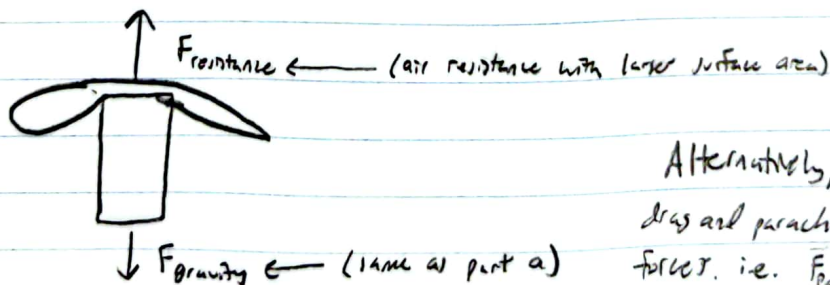 Fresistance ← (air resistance with larger surface area)
Alternatively,
drag and parach
forces. i.e.
Fgravity ← (same as part a)